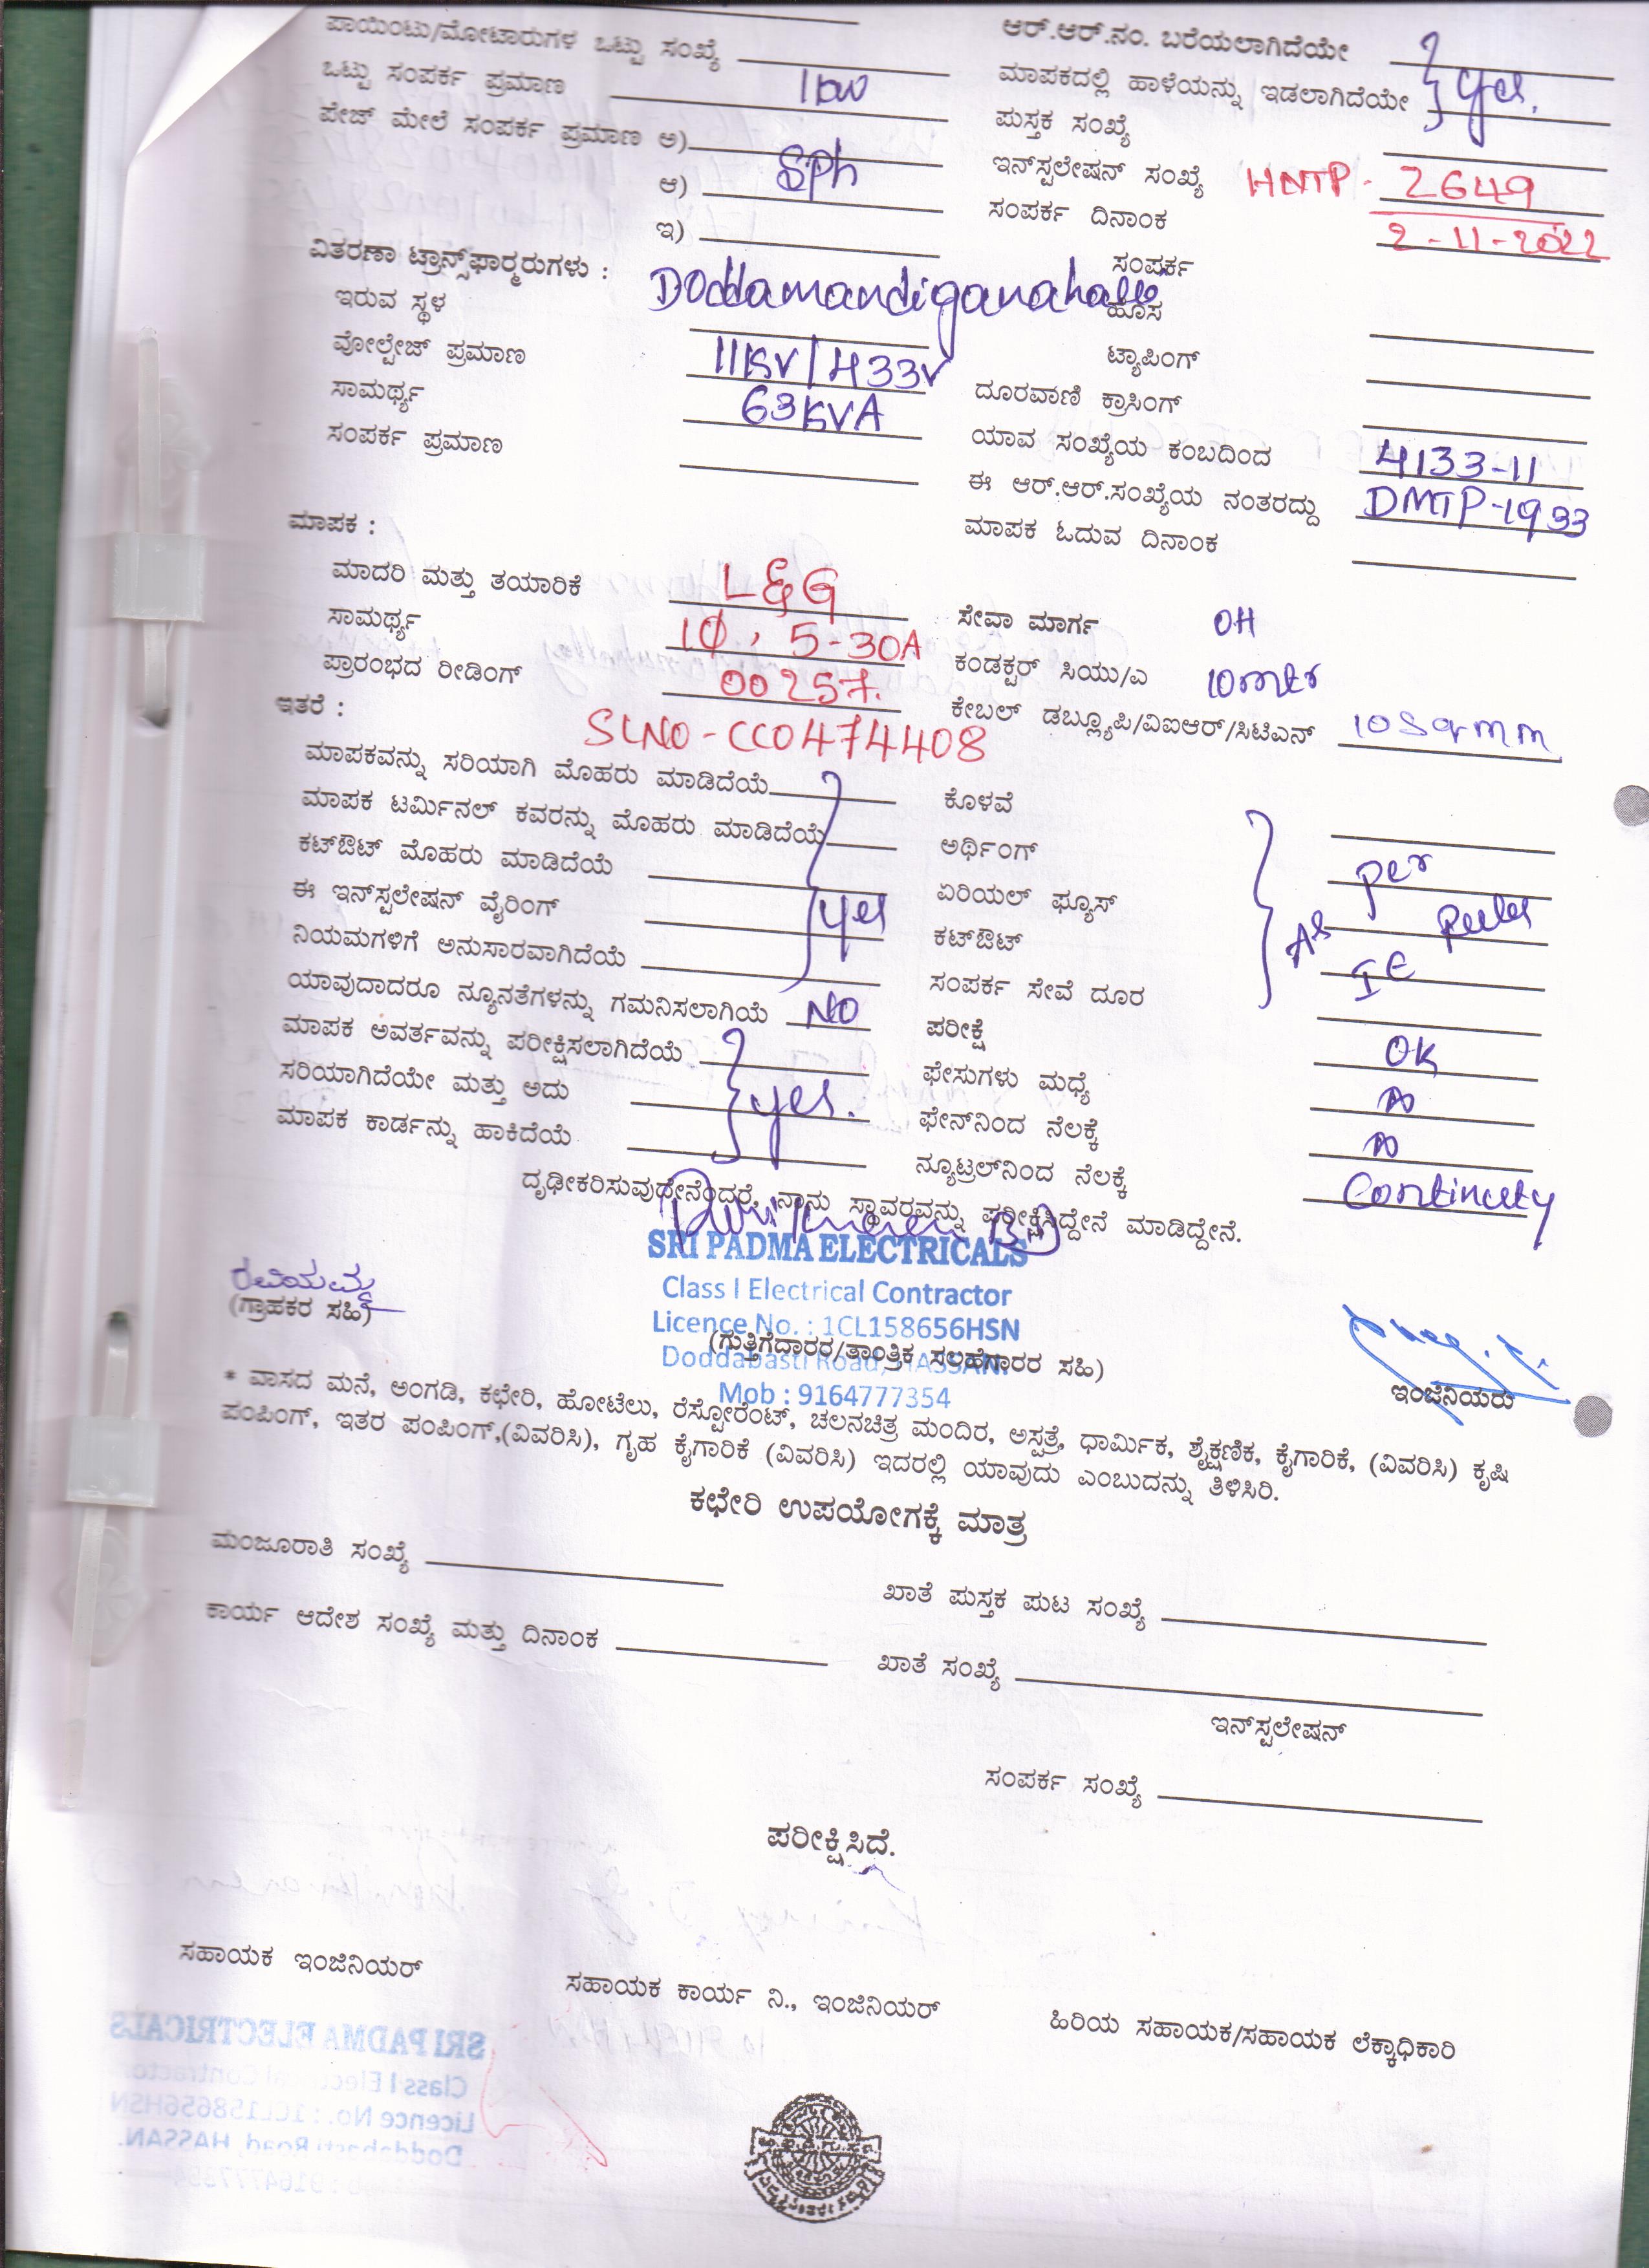 ಪಾಯಿಂಟು/ಮೋಟಾರುಗಳ ಒಟ್ಟು ಸಂಖ್ಯೆ
ಒಟ್ಟು ಸಂಪರ್ಕ ಪ್ರಮಾಣ 1kw
ಪೇಜ್ ಮೇಲೆ ಸಂಪರ್ಕ ಪ್ರಮಾಣ ಅ)
ಆ) SPh
ಇ)
ವಿತರಣಾ ಟ್ರಾನ್ಸ್‌ಫಾರ್‍ಮರುಗಳು :
ಇರುವ ಸ್ಥಳ Doddamandiganahalli
ವೋಲ್ಟೇಜ್ ಪ್ರಮಾಣ 11KV/433V
ಸಾಮರ್ಥ್ಯ 63KVA
ಸಂಪರ್ಕ ಪ್ರಮಾಣ
ಆರ್.ಆರ್.ನಂ. ಬರೆಯಲಾಗಿದೆಯೇ
ಮಾಪಕದಲ್ಲಿ ಹಾಳೆಯನ್ನು ಇಡಲಾಗಿದೆಯೇ yes.
ಪುಸ್ತಕ ಸಂಖ್ಯೆ
ಇನ್‌ಸ್ಟಲೇಷನ್ ಸಂಖ್ಯೆ HNTP - 2649
ಸಂಪರ್ಕ ದಿನಾಂಕ 2-11-2022
ಸಂಪರ್ಕ
ಹೊಸ
ಟ್ಯಾಪಿಂಗ್
ದೂರವಾಣಿ ಕ್ರಾಸಿಂಗ್
ಯಾವ ಸಂಖ್ಯೆಯ ಕಂಬದಿಂದ 4133-11
ಈ ಆರ್.ಆರ್.ಸಂಖ್ಯೆಯ ನಂತರದ್ದು DMTP-1933
ಮಾಪಕ ಓದುವ ದಿನಾಂಕ
ಮಾಪಕ :
ಮಾದರಿ ಮತ್ತು ತಯಾರಿಕೆ L&G
ಸಾಮರ್ಥ್ಯ 1Φ, 5-30A
ಪ್ರಾರಂಭದ ರೀಡಿಂಗ್ 00257.
ಇತರೆ : SLNO-CC0474408
ಸೇವಾ ಮಾರ್ಗ OH
ಕಂಡಕ್ಟರ್ ಸಿಯು/ಎ 10mtr
ಕೇಬಲ್ ಡಬ್ಲ್ಯೂಪಿ/ವಿಐಆರ್/ಸಿಟಿಎನ್ 10Sqmm
ಮಾಪಕವನ್ನು ಸರಿಯಾಗಿ ಮೊಹರು ಮಾಡಿದೆಯೆ
ಮಾಪಕ ಟರ್ಮಿನಲ್ ಕವರನ್ನು ಮೊಹರು ಮಾಡಿದೆಯೆ
ಕಟ್‌ಔಟ್ ಮೊಹರು ಮಾಡಿದೆಯೆ
ಈ ಇನ್‌ಸ್ಟಲೇಷನ್ ವೈರಿಂಗ್ yes
ನಿಯಮಗಳಿಗೆ ಅನುಸಾರವಾಗಿದೆಯೆ
ಯಾವುದಾದರೂ ನ್ಯೂನತೆಗಳನ್ನು ಗಮನಿಸಲಾಗಿಯೆ NO
ಮಾಪಕ ಅವರ್ತವನ್ನು ಪರೀಕ್ಷಿಸಲಾಗಿದೆಯೆ
ಸರಿಯಾಗಿದೆಯೇ ಮತ್ತು ಅದು yes.
ಮಾಪಕ ಕಾರ್ಡನ್ನು ಹಾಕಿದೆಯೆ
ಕೊಳವೆ
ಅರ್ಥಿಂಗ್
ಏರಿಯಲ್ ಫ್ಯೂಸ್
ಕಟ್‌ಔಟ್
ಸಂಪರ್ಕ ಸೇವೆ ದೂರ
As per IE Rules
ಪರೀಕ್ಷೆ OK
ಫೇಸುಗಳು ಮಧ್ಯೆ
ಫೇಸ್‌ನಿಂದ ನೆಲಕ್ಕೆ
ನ್ಯೂಟ್ರಲ್‌ನಿಂದ ನೆಲಕ್ಕೆ Continuty
ದೃಢೀಕರಿಸುವುದೇನೆಂದರೆ, ನಾನು ಸ್ಥಾವರವನ್ನು ಪರೀಕ್ಷಿಸಿದ್ದೇನೆ ಮಾಡಿದ್ದೇನೆ.
SRI PADMA ELECTRICALS
Class I Electrical Contractor
Licence No. : 1CL158656HSN
Doddabasti Road, HASSAN.
Mob : 9164777354
(ಗ್ರಾಹಕರ ಸಹಿ)
(ಗುತ್ತಿಗೆದಾರರ/ತಾಂತ್ರಿಕ ಸಲಹೆಗಾರರ ಸಹಿ)
ಇಂಜಿನಿಯರು
* ವಾಸದ ಮನೆ, ಅಂಗಡಿ, ಕಛೇರಿ, ಹೋಟೆಲು, ರೆಸ್ಟೋರೆಂಟ್, ಚಲನಚಿತ್ರ ಮಂದಿರ, ಅಸ್ಪತ್ರೆ, ಧಾರ್ಮಿಕ, ಶೈಕ್ಷಣಿಕ, ಕೈಗಾರಿಕೆ, (ವಿವರಿಸಿ) ಕೃಷಿ
ಪಂಪಿಂಗ್, ಇತರ ಪಂಪಿಂಗ್,(ವಿವರಿಸಿ), ಗೃಹ ಕೈಗಾರಿಕೆ (ವಿವರಿಸಿ) ಇದರಲ್ಲಿ ಯಾವುದು ಎಂಬುದನ್ನು ತಿಳಿಸಿರಿ.
ಕಛೇರಿ ಉಪಯೋಗಕ್ಕೆ ಮಾತ್ರ
ಮಂಜೂರಾತಿ ಸಂಖ್ಯೆ
ಖಾತೆ ಪುಸ್ತಕ ಪುಟ ಸಂಖ್ಯೆ
ಕಾರ್ಯ ಆದೇಶ ಸಂಖ್ಯೆ ಮತ್ತು ದಿನಾಂಕ
ಖಾತೆ ಸಂಖ್ಯೆ
ಇನ್‌ಸ್ಟಲೇಷನ್
ಸಂಪರ್ಕ ಸಂಖ್ಯೆ
ಪರೀಕ್ಷಿಸಿದೆ.
ಸಹಾಯಕ ಇಂಜಿನಿಯರ್
ಸಹಾಯಕ ಕಾರ್ಯ ನಿ., ಇಂಜಿನಿಯರ್
ಹಿರಿಯ ಸಹಾಯಕ/ಸಹಾಯಕ ಲೆಕ್ಕಾಧಿಕಾರಿ